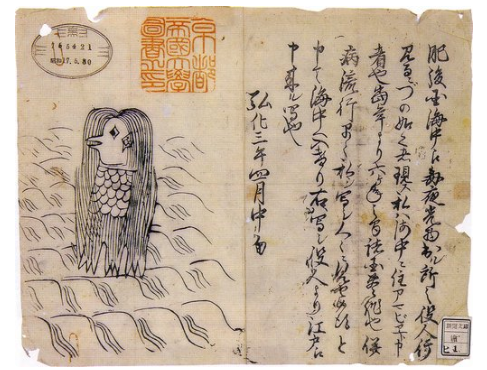 肥後国海中え毎夜光物出ル所之役人行
見るニづの如く者現ス私ハ海中ニ住アマビヱト申
者也當年より六ヶ年之間諸国豊作也併
病流行早々私ヲ写シ人々ニ見セ候得と
申て海中へ入けり右ハ写シ役人より江戸え
申来ル写也
弘化三年四月中旬
京都
帝國大學
圖書之印